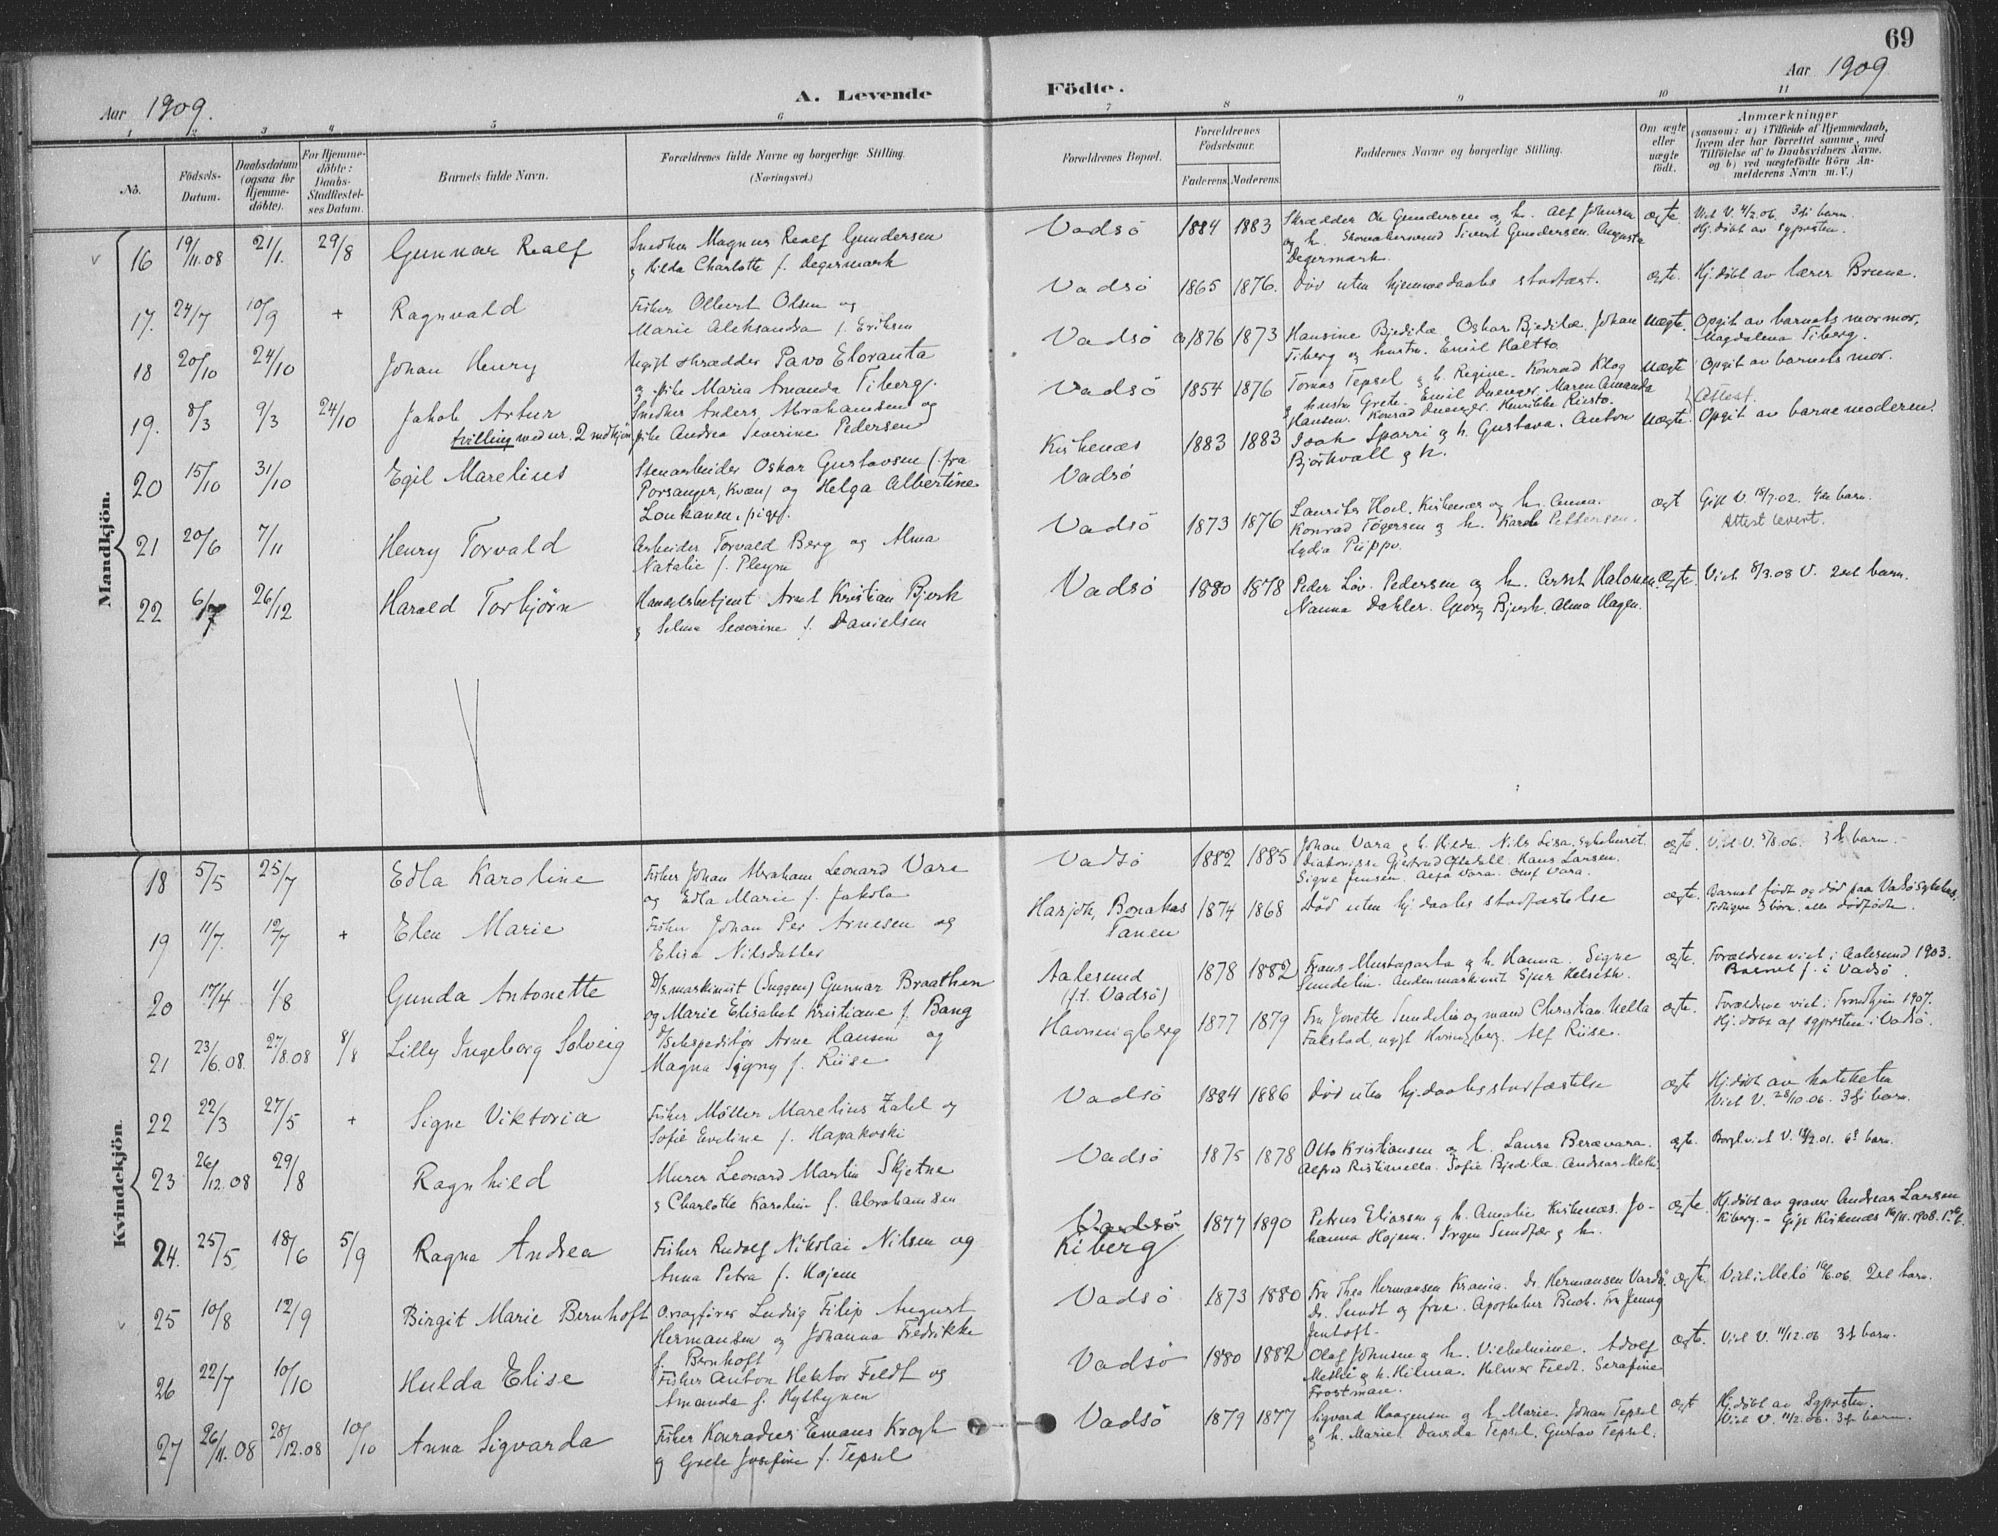 69
Aar 1909.
A. Levende
Födte.
Aar 1909
1 2 3 4 5 6 7 8 9 10 11
No.
Födsels-
Datum.
Daabsdatum
(ogsaa for
Hjemme-
döbte).
For Hjemme-
döbte:
Daabs-
Stadfæstel-
ses Datum.
Barnets fulde Navn.
Forældrenes fulde Navne og borgerlige Stilling.
(Næringsvei.)
Forældrenes Bopæl.
Forældrenes
Födselsaar.
Faderens. Moderens.
Faddernes Navne og borgerlige Stilling.
Om ægte
eller
uægte
födt.
Anmærkninger
(saasom: a) i Tilfælde af Hjemmedaab,
hvem der har forrettet samme, med
Tilföielse af to Daabsvidners Navne,
og b) ved uægtefödte Börn An-
melderens Navn m. V.)
Mandkjön.
16 19/11.08 21/1. 29/8 Gunnar Realf
Snedker Magnus Realf Gundersen
& Hilda Charlotte f. Degermark
Vadsö 1884 1883
Skrædder Gundersen og h. Alf Johnsen
og h. Sivert Gundersen. Augusta
Degermark.
ægte.
Viet V. 4/2.06. 3dj barn.
Hj.döbt av sygprsten.
17. 24/7 10/9 + Ragnvald
Fisker Olbert Olsen og
Marie Aleksandra f. Eriksen
Vadsö 1865 1876.
Död uten hjemmedaabs stadfæst.
ægte.
Hj.döbt av lærer Brune.
18 20/10 24/10 Johan Henry
Ugift skrædder Pavo Eloranta
og pike Maria Amanda Tiberg.
Vadsö 1876 1873
Hansine Bjedilæ, Oskar Bjedilæ. Johan
Tiberg og hustru. Emil Haltto.
Uægte.
Opgit av barnets mormor,
Magdalena Tiberg.
19. 8/3 9/3 24/10 Jakob Artur
tvilling med nr. 2 mdkjön
Snedker Anders Abrahamsen og
pike Andrea Severine Pedersen
Vadsö 1854 1876
Tomas Tepsel & h. Regine. Konrad Klog
& hustru Grete. Emil Maren Amanda
Hansen. Konrad
Uægte
Opgit av barnets mor.
Attest.
20 15/10 31/10 Egil Marelius
Stenarbeider Oskar Gustavsen (fra
Porsanger, kvæn) og Helga Albertine
Loukanen, pige.
Kirkenæs
Vadsö
1883 1883
Isak Sparri og h. Gustava. Anton
Björkvall & h.
Uægte.
Opgit av barnemoderen.
21 20/6 7/11 Henry Torvald
Arbeider Torvald Berg og Alma
Natalie f. Pleym
Vadsö 1873 1876
Laurits Hoel, Kirkenæs og h. Anna.
Konrad Tögersen og h. Karen Pettersen.
Lydia Piippo.
ægt
Gift V. 18/7.02. 4de barn.
Attest levert.
22 6/7 26/12 Harald Torbjörn
Handelsbetjent Arnt Kristian Bjerk
& Selma Severine f. Danielsen
Vadsö 1880 1878
Peder Lov. Pedersen og h. Halonen.
Nanna Dahler. Georg Bjerk. Alma Hagen.
ægte.
Viet 8/3.08 V. 2det barn.
Kvindekjön.
18 5/5 25/7 + Edla Karoline
Fisker Johan Abraham Leonard Vara
og Edla Marie f. Jakola
Vadsö 1882 1885
Johan Vara & h. Hilda. Nils Lisa, sykehuset.
Diakonisse Gjertrud Hans Larsen.
Signe Jensen. Alfa Vara. Oluf Vara.
ægte.
Viet V. 5/8.06. 3dj barn.
19 11/7. 12/7 + Elen Marie
Fisker Johan Per Arnesen og
Elisa Nilsdatter
Harjok, Bonakas
Tanen
1874 1868
Död uten hj.daabs stadfæstelse
ægte.
Barnet födt og död paa Vadsö sykehus.
Tidligere 3 börn, alle dödfödte.
20 17/4 1/8 Gunda Antonette
D/Smaskinist (Duggen) Gunnar Braathen
og Marie Elisabet Kristiane f. Bang
Aalesund
(f.t. Vadsö)
1878 1882
Frans Mustaparta og h. Hanna. Signe
Sundelin. Andenmaskinist Sjur Helseth.
ægte.
Forældrene viet i Aalesund 1903.
Barnet f. i Vadsö.
21 23/6.08 27/8.08 8/8 Lilly Ingeborg Solveig
D/Sekspeditör Arne Hansen og
Magna Signy f. Riise
Havningberg 1877 1879
Fru Jonette Sundelin og mand Christian. Mella
Falstad, ugift Havningberg. Alf Riise.
ægte.
Forældrene viet i Trondhjem 1907.
Hj.döbt af sygprsten i Vadsö.
22 22/3 27/5 + Signe Viktoria
Fisker Möller Marelius Zahl og
Sofie Eveline f. Hapakoski
Vadsö 1884 1886
Död uten hj.daabs stadfæstelse
ægte
Hj.döbt av kateketen
Viet V. 28/10.06. 3dj barn.
23 26/12.08 29/8 Ragnhild
Murer Leonard Martin Skjetne
& Charlotte Karoline f. Abrahamsen
Vadsö 1875 1878
Otto Kristiansen og h. Laura Beravara.
Alfred Ristiniella. Sofie Bjedilæ. Andreas
ægte.
Borgl. viet V. 12/2.01. 6t barn.
24. 25/5 18/6 5/9 Ragna Andrea
Fisker Rudolf Nikolai Nilsen og
Anna Petra f. Hojem
Vadsö
Kiberg
1877 1890
Petrus Eliassen & h. Amalie Kirkenæs. Jo-
hanna Hojem. Jörgen Sundfær & h.
ægte.
Hj.döbt av graver Andreas Larsen
Kiberg. - Gift Kirkenæs 16/11.1908.
25 10/8 12/9 Birgit Marie Bernhoft
Overagförer Ludvig Filip August
Hermansen og Johanna Fredrikke
f. Bernhoft
Vadsö 1873 1880
Fru Thea Hermansen Krania. Dr. Hermansen Vardö
Dr. Sundt og frue. Apotheker Buch. Fru Jenny
Jentoft.
ægte.
Viet i Melö 16/6.06. 2det barn.
26 22/7 10/10 Hulda Elise
Fisker Anton Hektor Feldt og
Amanda f. Hyttynen
Vadsö 1880 1882
Olaf Johnsen & h. Vilhelmine. Adolf
og h. Hilma. Helmer Feldt. Serafine
Frostman.
ægte.
Viet V. 11/12.06 3dj barn.
27 26/11.08 28/12.08 10/10 Anna Sigvarda
Fisker Konradius Emans Krogh
og Grete Josefine f. Tepsel
Vadsö 1879 1877
Sigvard Haagensen og h. Marie. Johan Tepsel
& h. Marie. Davida Tepsel. Gustav Tepsel.
ægt
Hj.döbt av Sygprsten.
Viet V. 11/2.06. 3dj barn.